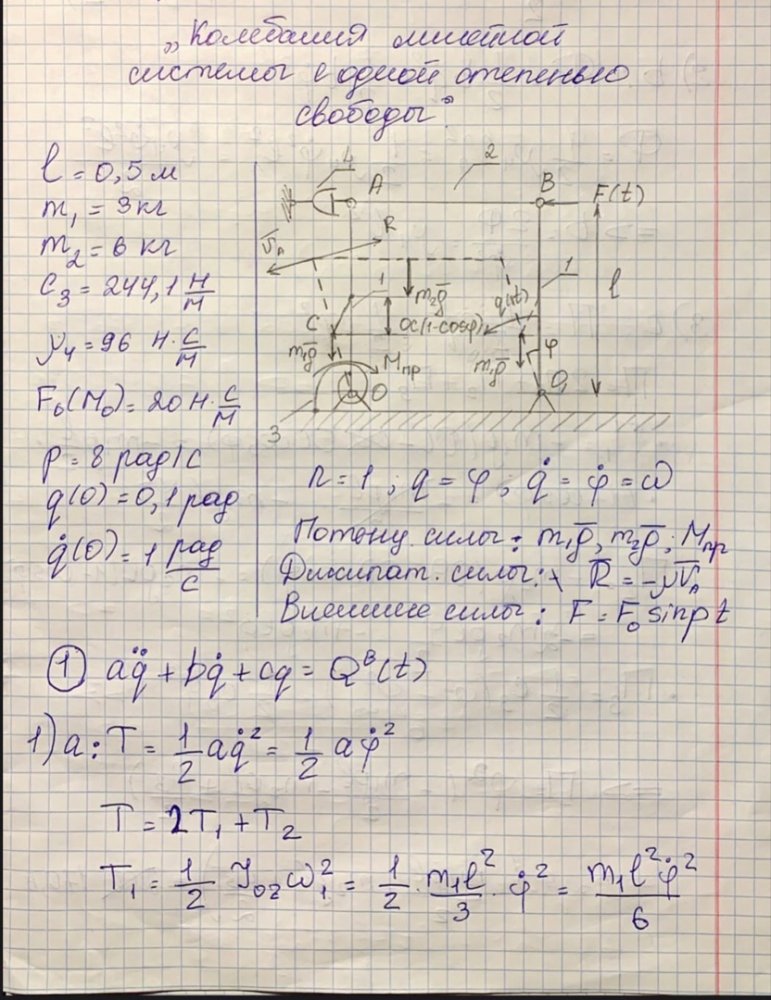 „Колебания линейной
системы с одной степенью
свободы"
l = 0,5 м
m₁ = 3 кг
m₂ = 6 кг
C₃ = 244,1 Н/м
μ₄ = 96 Н·с/м
F₀(M₀) = 20 Н·с/м
p = 8 рад/с
q(0) = 0,1 рад
q̇(0) = 1 рад/с
4
A
2
B
F(t)
V̄ₐ
R
1
m₂ḡ
q(t)
1
l
C
OC(1-cosφ)
m₁ḡ
Mпр
m₁ḡ
φ
O
O₁
3
n = 1 ; q = φ ; q̇ = φ̇ = ω
Потенц. силы: m₁ḡ, m₂ḡ; Mпр
Диссипат. силы: R̄ = -μV̄ₐ
Внешние силы: F = F₀ sinpt
① aq̈ + bq̇ + cq = Qᴮ(t)
1) a: T = 1/2 aq̇² = 1/2 aφ̇²
T = 2T₁ + T₂
T₁ = 1/2 J₀z ω₁² = 1/2 · m₁l²/3 · φ̇² = m₁l²φ̇²/6